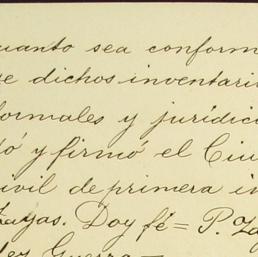 uanto sea conform
e dichos inventari
formales y jurídic
ó y firmó el Ciu
ivil de primera in
Zayas. Doy fé = P. Za
Guerra